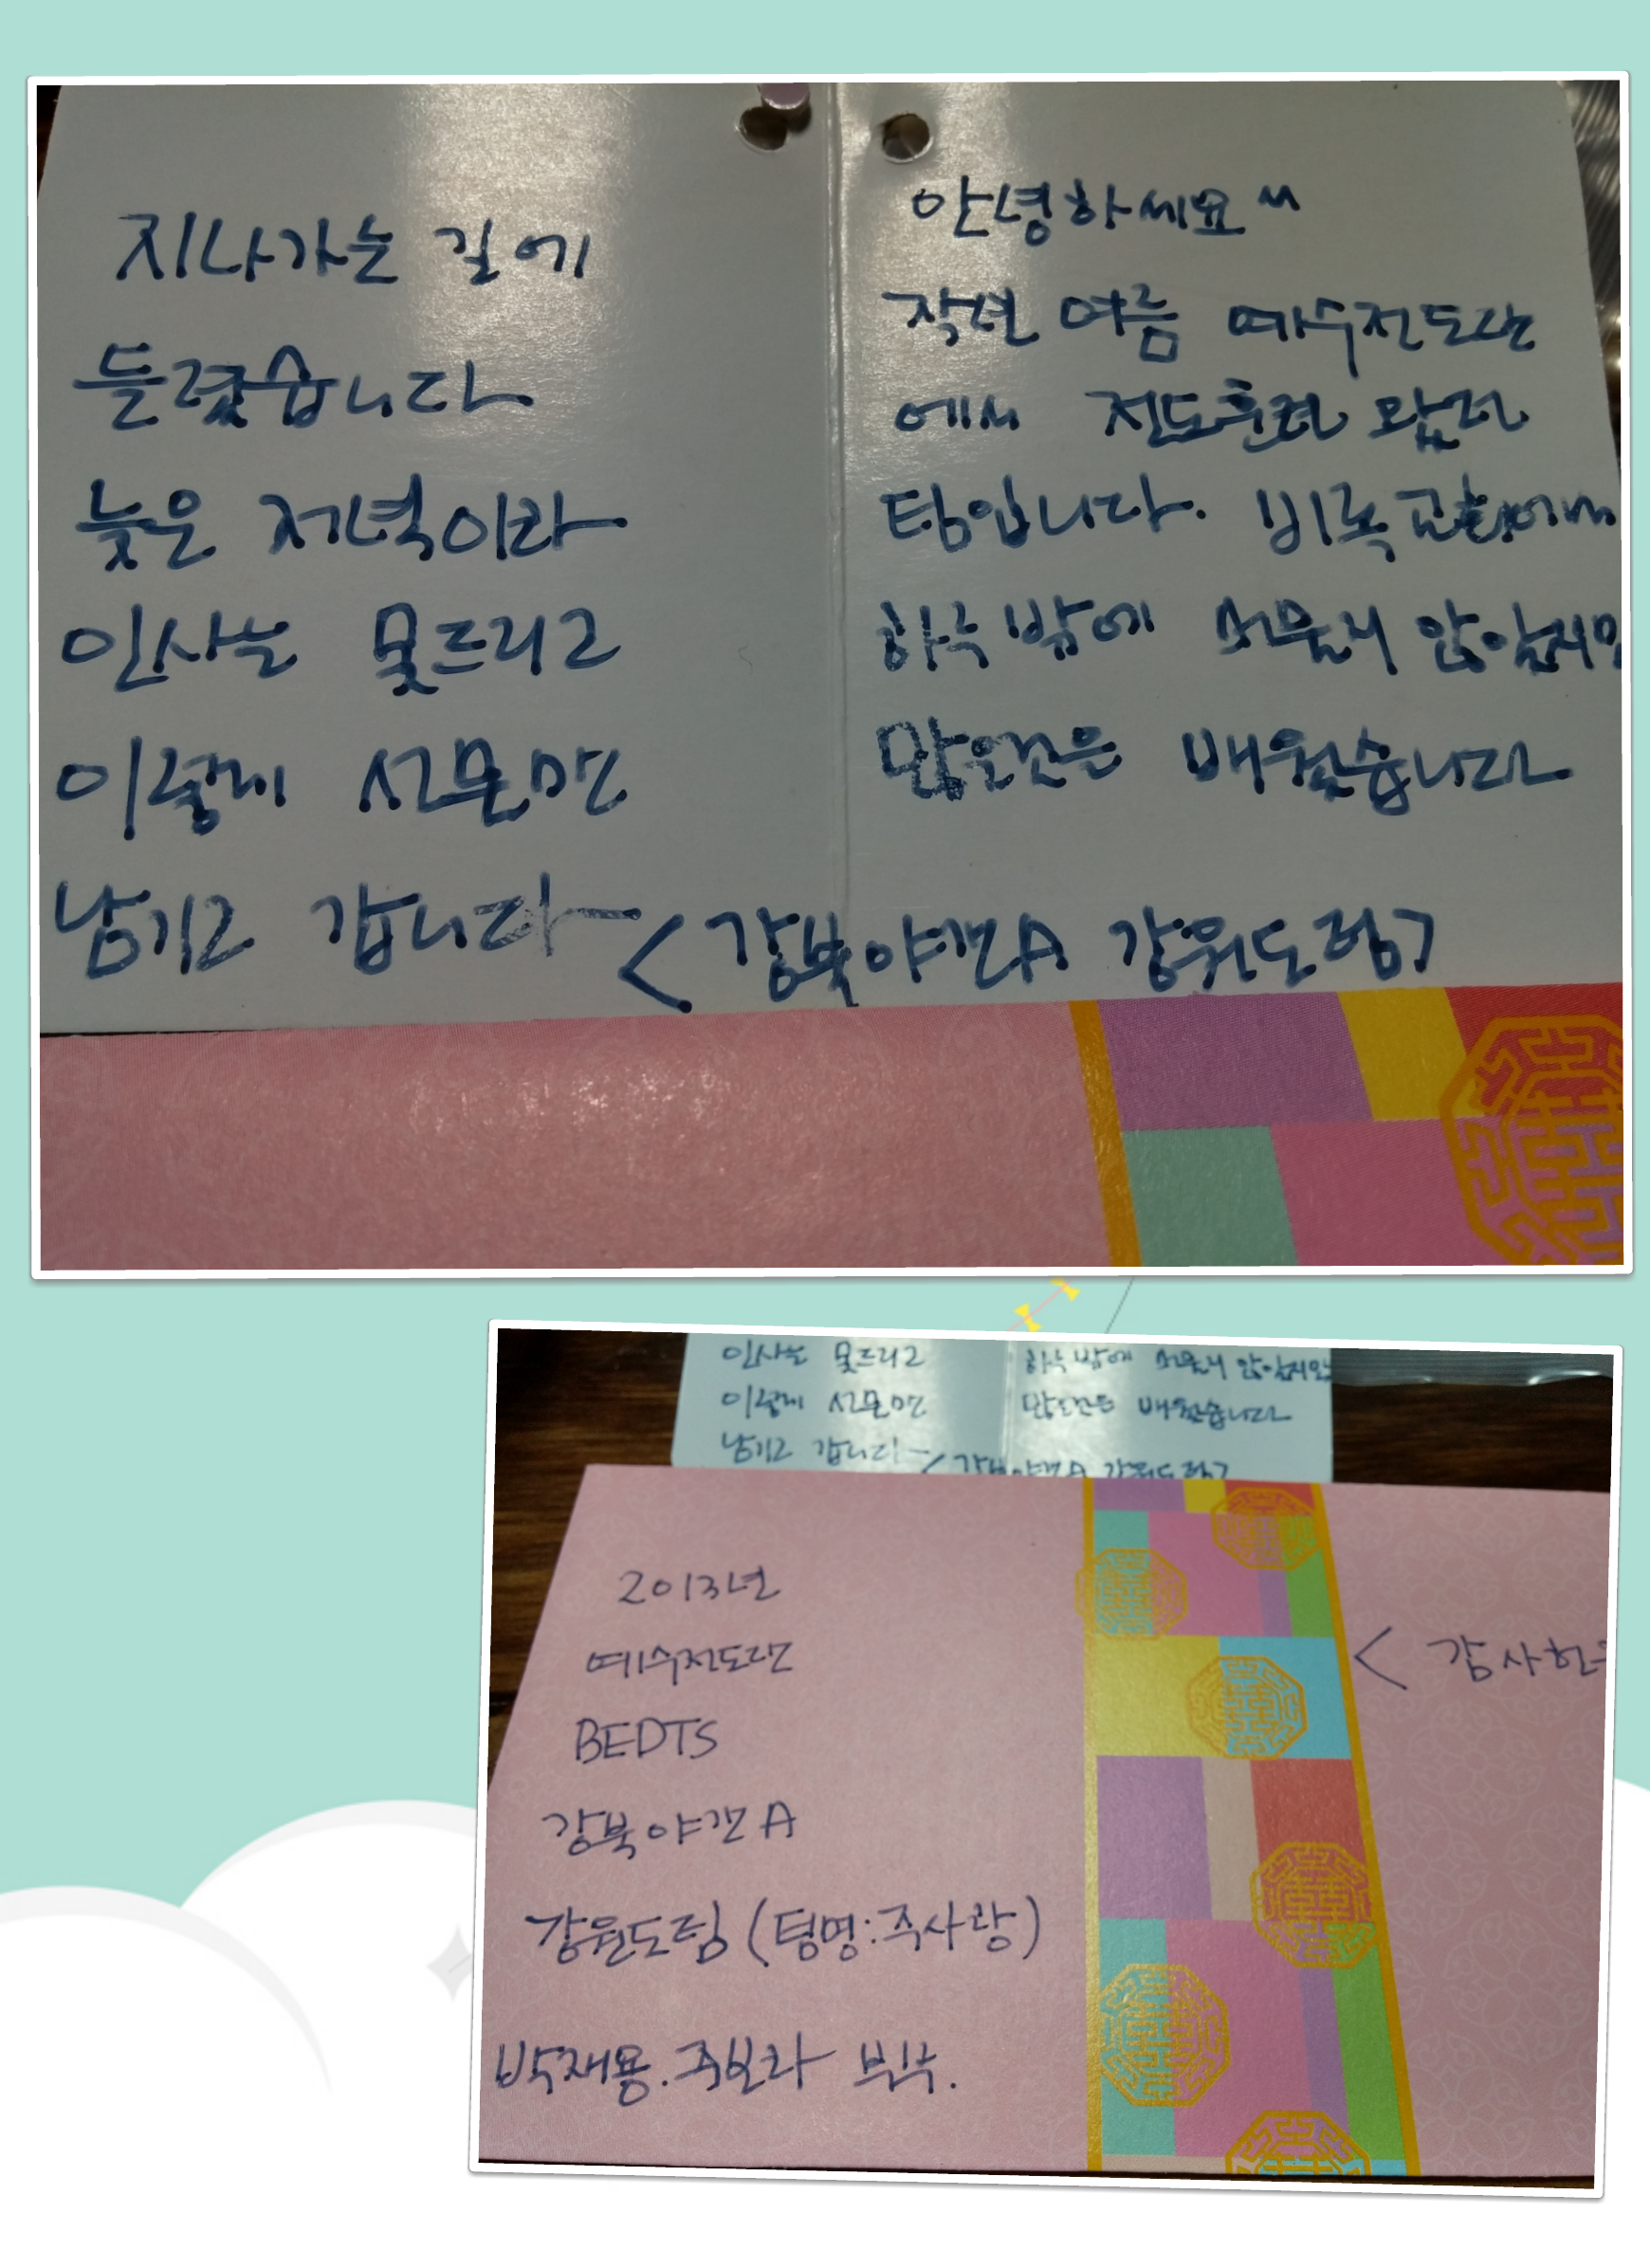 지나가는 길에
들렸습니다
늦은 저녁이라
인사는 못드리고
이렇게 선물만
남기고 갑니다
안녕하세요^^
작년 여름 예수전도단
에서 전도훈련 왔던
팀입니다. 비록 교회에서
하루밤에 머물지 않았지만
많은것은 배웠습니다
< 강북야간A 강원도팀7
인사는 못드리고
이렇게 선물만
남기고 갑니다
하루밤에 머물지 않았지만
많은것은 배웠습니다
< 강북야간A 강원도팀7
2013년
예수전도단
BEDTS
강북야간A
강원도팀(팀명:주사랑)
박재용.주보라 부부.
< 감사헌